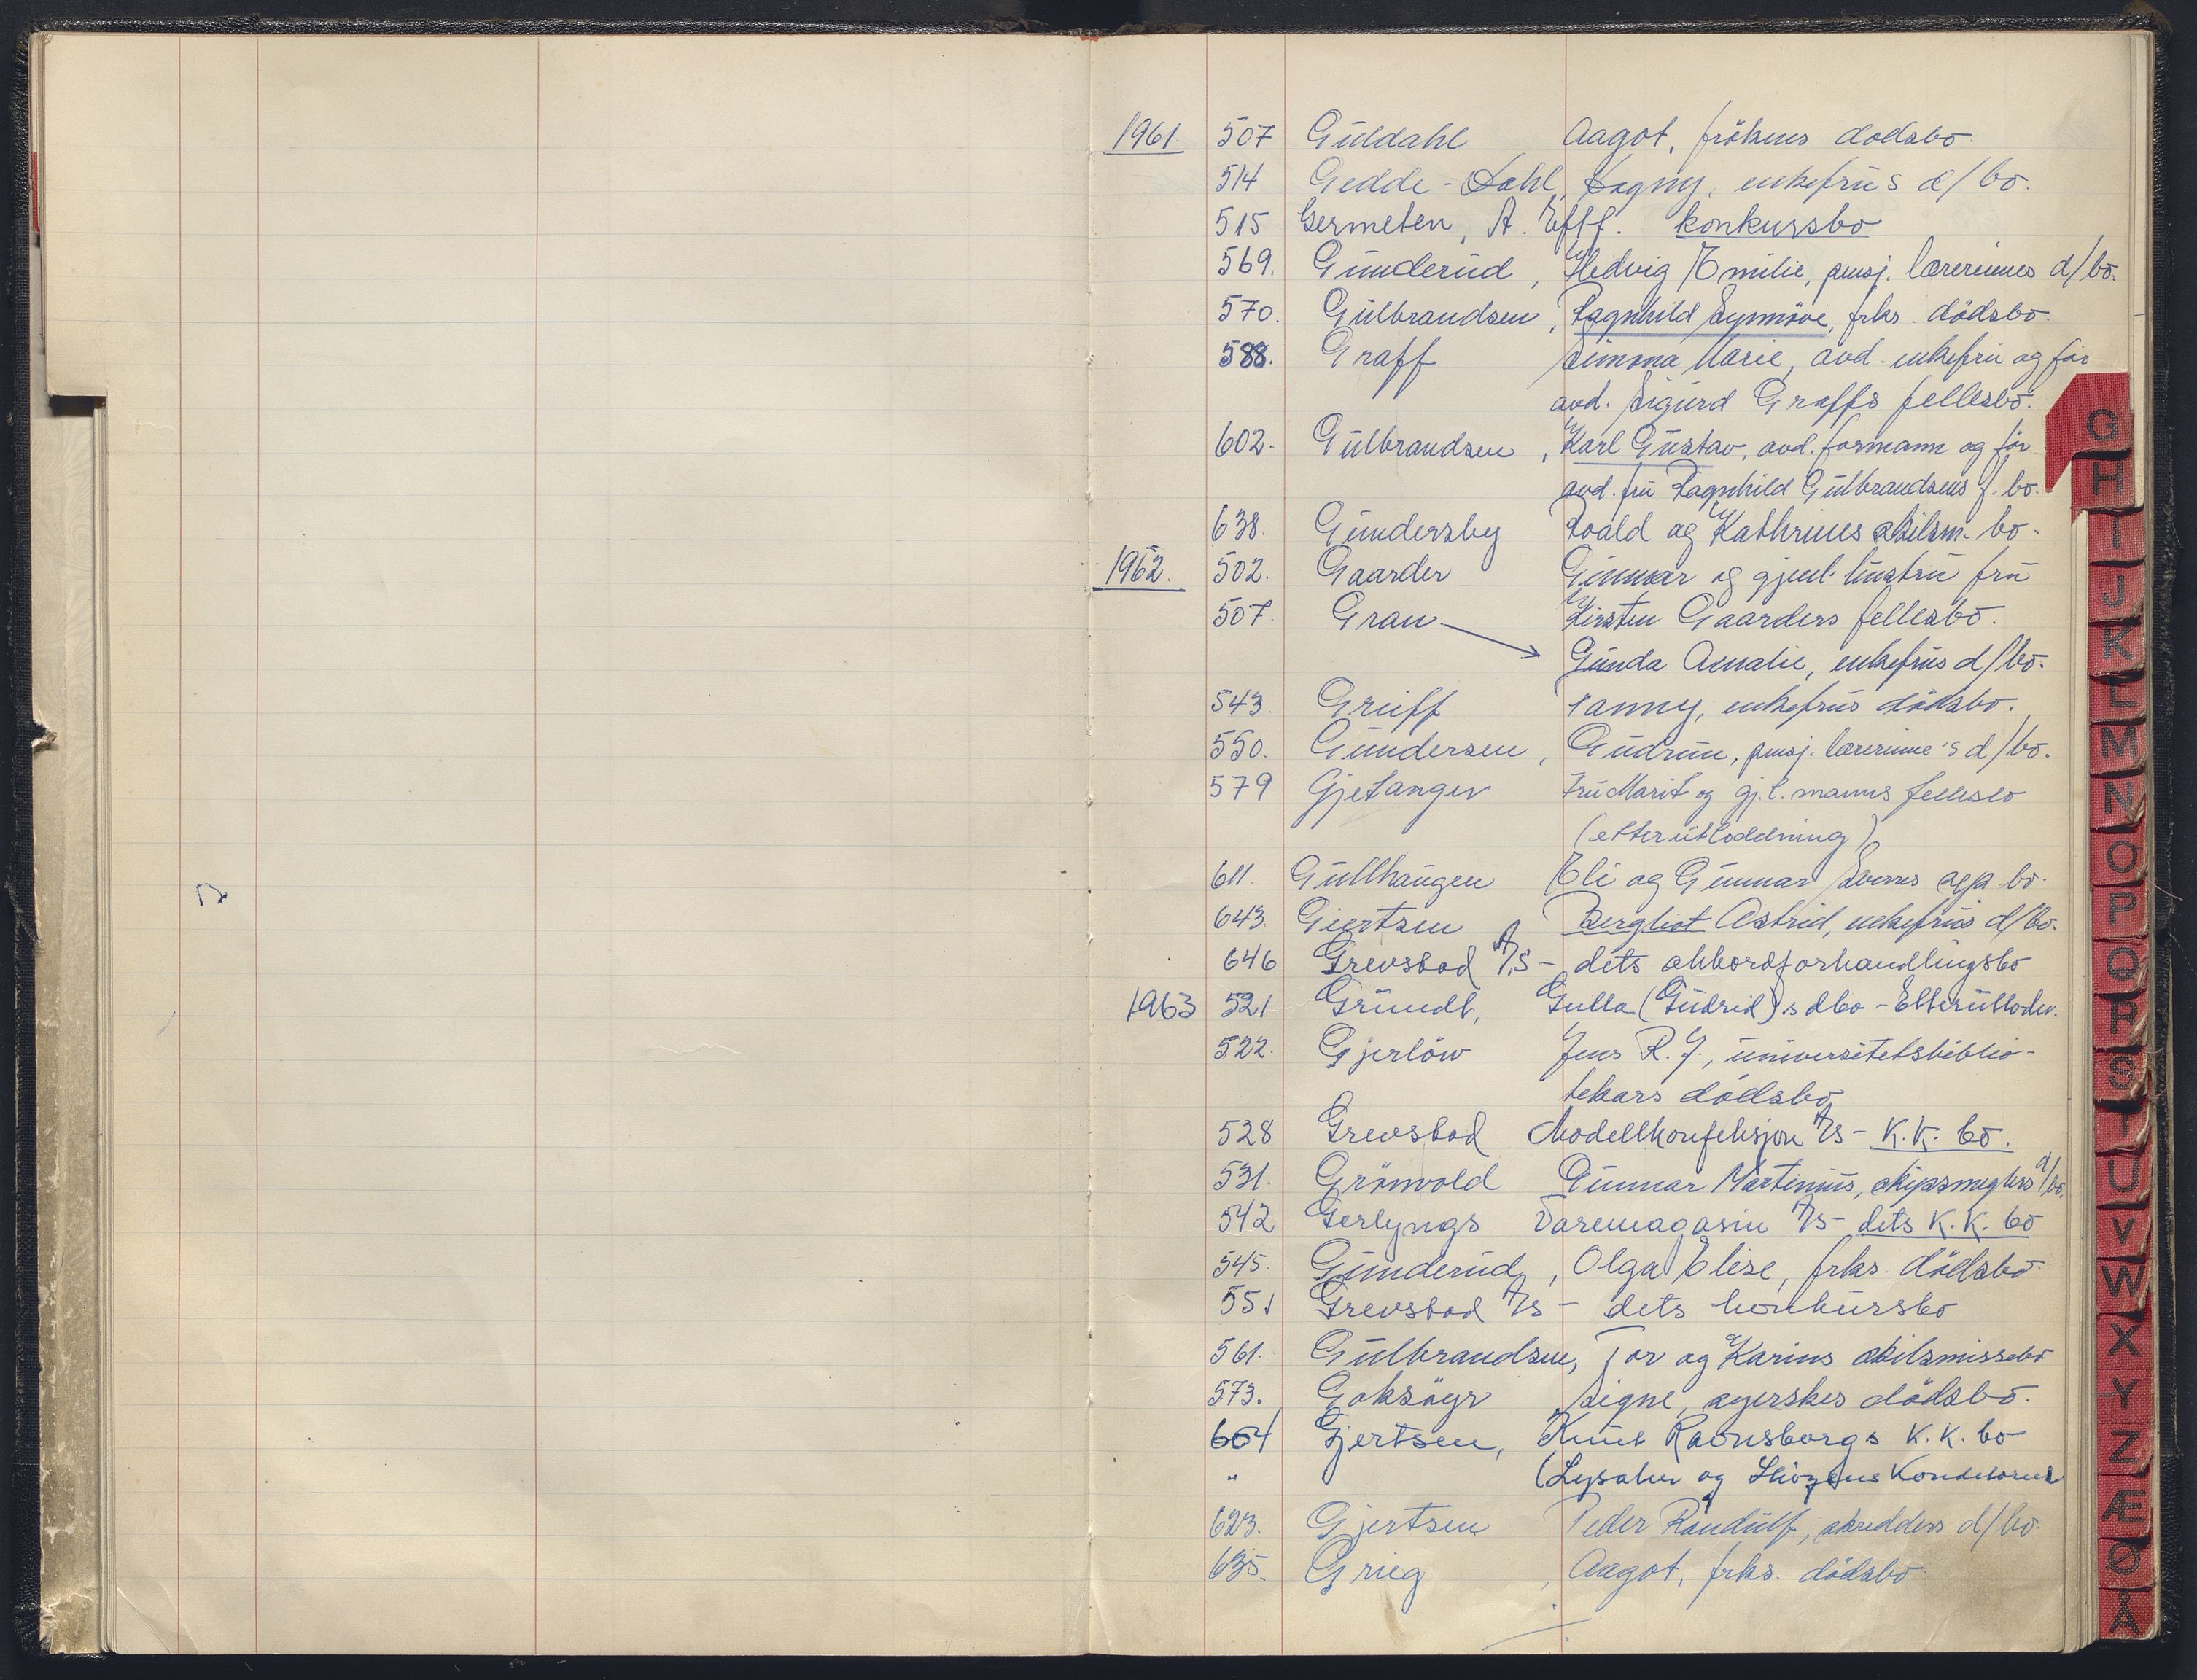 1961. 507 Guldahl Aagot, frökens dödsbo
514 Gedde-Dahl, Dagny, enkefrus d/bo.
515 Germeten, A. Eftf. konkursbo
569. Gunderud, Hedvig Emilie, pensj. lærerinnes d/bo.
570. Gulbrandsen, Ragnhild Synnöve, frks. dödsbo.
588. Graff Simona Marie, avd. enkefru og før
avd. Sigurd Graffs fellesbo.
602. Gulbrandsen, Karl Gustav, avd. formann og før
avd. fru Ragnhild Gulbrandsens f. bo.
638. Gundersby Roald og Kathrines skilsm. bo.
1962. 502. Gaarder Gunnar og gjenl. hustru fru
507. Gran Kirsten Gaarders fellesbo.
Gunda Amalie, enkefrus d/bo.
543. Greiff Fanny, enkefrus dödsbo.
550. Gundersen, Gudrun, pensj. lærerinne's d/bo.
579 Gjetanger Fru Marit og gj.l. manns fellesbo
(etterutloddning)
611. Gullhaugen Eli og Gunnar Sverres bo.
643. Giertsen Bergliot Astrid, enkefrus d/bo.
646 Grevstad A/S - dets akkordforhandlingsbo
1963 521 Grundt, Gulla (Gudrid)s dbo - Etterutlodn.
522. Gjerlöw Jens R. J., universitetsbiblio-
tekars dödsbo
528 Grevstad Modellkonfeksjon A/S - K.K. bo.
531. Grönvold Gunnar Martinius, skipsmeglers d/bo.
542 Gerlyngs Varemagasin A/S - dets K.K. bo
545. Gunderud, Olga Elise, frks. dödsbo
551 Grevstad A/S - dets konkursbo
561. Gulbrandsen, Tor og Karins skilsmissebo
573. Goksöyr, Signe, syerskes dödsbo.
604 Gjertsen, Knut Ravnsborgs K.K. bo
" (Lysaker og Skoyens Konditorier
623. Gjertsen Peder Randulf, skredders d/bo.
635. Grieg, Aagot, frks. dödsbo
G
H
I
J
K
L
M
N
O
P
Q
R
S
T
U
V
W
X
Y
Z
Æ
Ø
Å